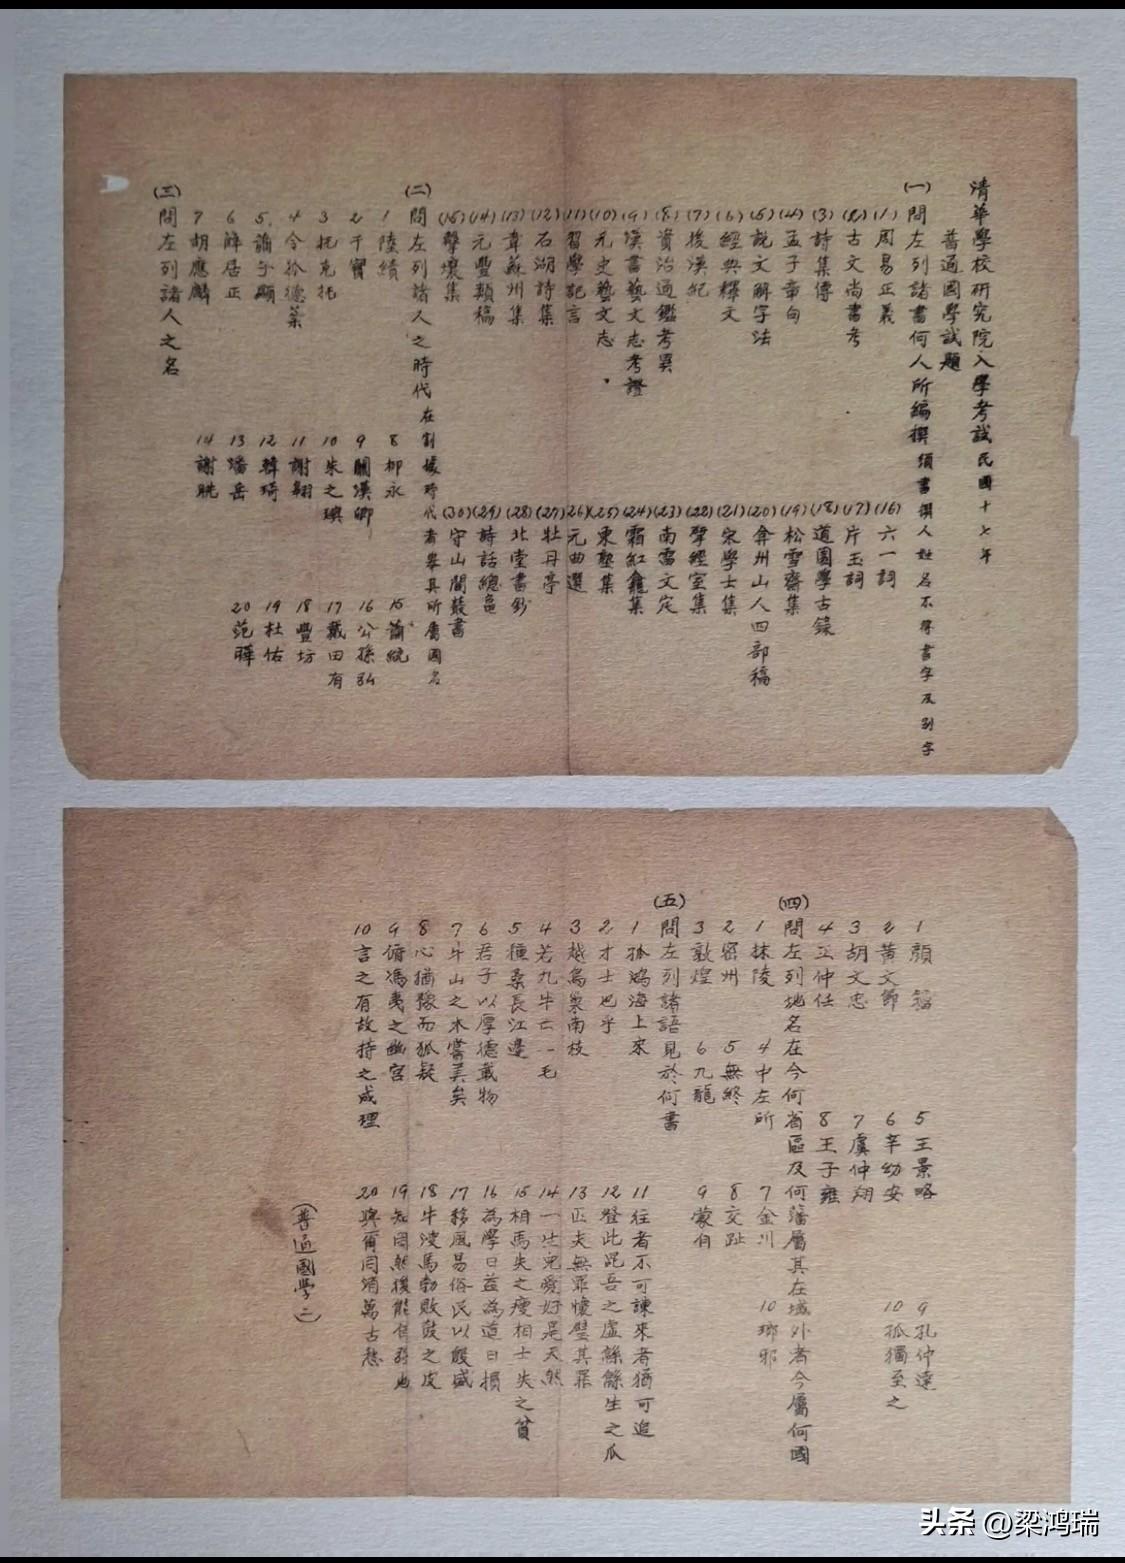 清華學校研究院入學考試民國十七年
普通國學試題
(一)問左列諸書何人所編撰須書撰人姓名不得書字及別字
(1)周易正義
(2)古文尚書考
(3)詩集傳
(4)孟子章句
(5)說文解字法
(6)經典釋文
(7)後漢紀
(8)資治通鑑考異
(9)漢書藝文志考證
(10)元史藝文志
(11)習學記言
(12)石湖詩集
(13)韋蘇州集
(14)元豐類稿
(15)擊壤集
(16)六一詞
(17)片玉詞
(18)道園學古錄
(19)松雪齋集
(20)弇州山人四部稿
(21)宋學士集
(22)揅經室集
(23)南雷文定
(24)霜紅龕集
(25)東塾集
(26)元曲選
(27)牡丹亭
(28)北堂書鈔
(29)詩話總龜
(30)守山閣叢書
(二)問左列諸人之時代在割據時代者舉其所屬國名
1 陸績
2 干寶
3 托克托
4 令狐德棻
5 蕭子顯
6 薛居正
7 胡應麟
8 柳永
9 關漢卿
10 朱之瑜
11 謝翱
12 韓琦
13 潘岳
14 謝朓
15 蕭統
16 公孫弘
17 戴田有
18 豐坊
19 杜佑
20 范曄
(三)問左列諸人之名
1 顏籀
2 黃文節
3 胡文忠
4 王仲任
5 王景略
6 辛幼安
7 虞仲翔
8 王子雍
9 孔仲達
10 孤獨至之
(四)問左列地名在今何省區及何藩屬其在域外者今屬何國
1 秣陵
2 密州
3 敦煌
4 中左所
5 無終
6 九龍
7 金川
8 交趾
9 蒙自
10 瑯邪
(五)問左列諸語見於何書
1 孤鴻海上來
2 才士也乎
3 越鳥巢南枝
4 若九牛亡一毛
5 種桑長江邊
6 君子以厚德載物
7 牛山之木嘗美矣
8 心猶豫而狐疑
9 俯馮夷之幽宮
10 言之有故持之成理
11 往者不可諫來者猶可追
12 登此昆吾之虛緜緜生之瓜
13 匹夫無罪懷璧其罪
14 一生兒愛好是天然
15 相馬失之瘦相士失之貧
16 為學日益為道日損
17 移風易俗民以殷盛
18 牛溲馬勃敗鼓之皮
19 知困然後能自強也
20 與爾同銷萬古愁
(普通國學二)
头条 @梁鸿瑞